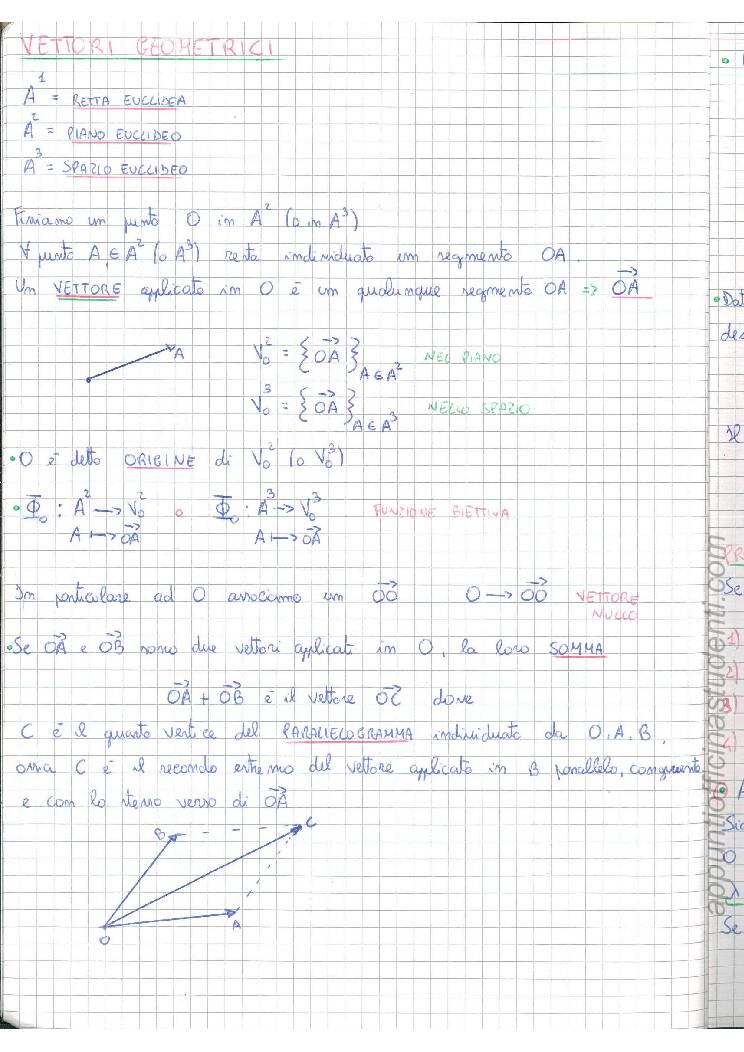 VETTORI GEOMETRICI
A¹ = RETTA EUCLIDEA
A² = PIANO EUCLIDEO
A³ = SPAZIO EUCLIDEO
Fissiamo un punto O in A² (o in A³)
∀ punto A ∈ A² (o A³) resta individuato un segmento OA.
Un VETTORE applicato in O è un qualunque segmento OA => \overrightarrow{OA}
A
V₀² = {\overrightarrow{OA}}_{A ∈ A²} NEL PIANO
V₀³ = {\overrightarrow{OA}}_{A ∈ A³} NELLO SPAZIO
• O è detto ORIGINE di V₀² (o V₀³)
• Φ₀ : A² → V₀² o Φ₀ : A³ → V₀³ FUNZIONE BIETTIVA
A ↦ \overrightarrow{OA} A ↦ \overrightarrow{OA}
In particolare ad O associamo un \overrightarrow{OO} O → \overrightarrow{OO} VETTORE
NULLO
• Se \overrightarrow{OA} e \overrightarrow{OB} sono due vettori applicati in O, la loro SOMMA
\overrightarrow{OA} + \overrightarrow{OB} è il vettore \overrightarrow{OC} dove
C è il quarto vertice del PARALLELOGRAMMA individuato da O, A, B,
ossia C è il secondo estremo del vettore applicato in B parallelo, congruente
e con lo stesso verso di \overrightarrow{OA}
B
C
A
O
• Dat
Se
1)
2)
3)
Se
appuntiofficinastudenti.com